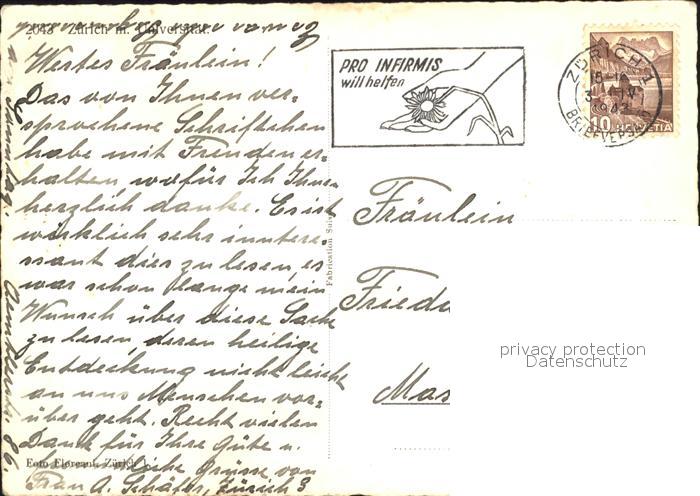 2043 Zürich m. Universität.
Wertes Fräulein!
Das von Ihnen ver-
sprochene Schriftchen
habe mit Freuden er-
halten wofür Ich Ihnen
herzlich danke. Es ist
wirklich sehr inntere-
ssant dies zu lesen, es
war schon lange mein
Wunsch über diese Sache
zu lesen, deren heilige
Entdeckung nicht leicht
an uns Menschen vor-
über geht. Recht vielen
Dank für Ihre Güte u.
freundliche Grüsse von
Frau A. Schäfer, Zürich 3
Foto Floreant, Zürich 1
Fabrication Suis
PRO INFIRMIS
will helfen
ZÜRICH 1
BRIEFVERS
10 HELVETIA
Fräulein
Frieda
Mas
privacy protection
Datenschutz